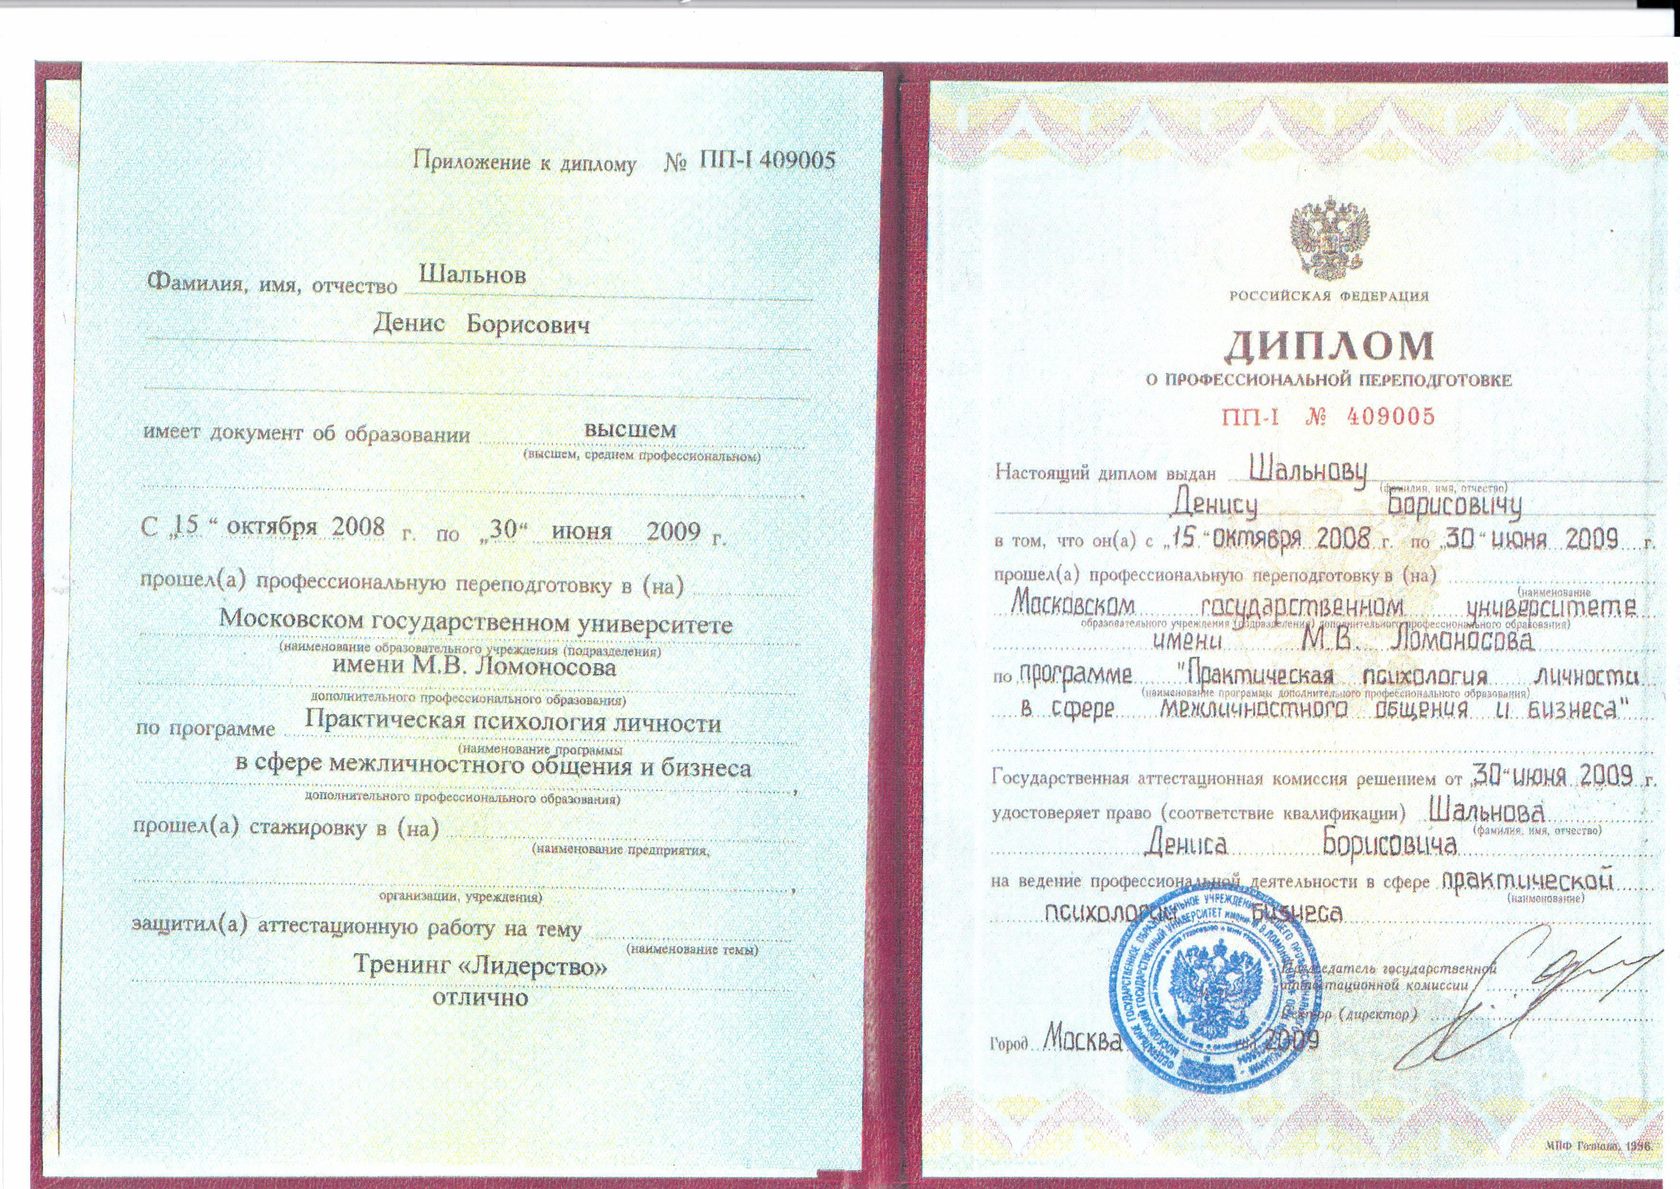 Приложение к диплому № ПП-I 409005
Фамилия, имя, отчество Шальнов
Денис Борисович
имеет документ об образовании высшем
(высшем, среднем профессиональном)
С „15“ октября 2008 г. по „30“ июня 2009 г.
прошел(а) профессиональную переподготовку в (на)
Московском государственном университете
(наименование образовательного учреждения (подразделения)
имени М.В. Ломоносова
дополнительного профессионального образования)
по программе Практическая психология личности
(наименование программы
в сфере межличностного общения и бизнеса
дополнительного профессионального образования)
прошел(а) стажировку в (на)
(наименование предприятия,
организации, учреждения)
защитил(а) аттестационную работу на тему
(наименование темы)
Тренинг «Лидерство»
отлично
РОССИЙСКАЯ ФЕДЕРАЦИЯ
ДИПЛОМ
О ПРОФЕССИОНАЛЬНОЙ ПЕРЕПОДГОТОВКЕ
ПП-I № 409005
Настоящий диплом выдан Шальнову
(фамилия, имя, отчество)
Денису Борисовичу
в том, что он(а) с „15“ октября 2008 г. по „30“ июня 2009 г.
прошел(а) профессиональную переподготовку в (на)
(наименование
Московском государственном университете
образовательного учреждения (подразделения) дополнительного профессионального образования)
имени М.В. Ломоносова
по программе "Практическая психология личности
(наименование программы дополнительного профессионального образования)
в сфере межличностного общения и бизнеса"
Государственная аттестационная комиссия решением от „30“ июня 2009 г.
удостоверяет право (соответствие квалификации) Шальнова
(фамилия, имя, отчество)
Дениса Борисовича
на ведение профессиональной деятельности в сфере практической
(наименование)
психологии бизнеса
Председатель государственной
аттестационной комиссии
Ректор (директор)
Город Москва 2009
МПФ Гознака, 1996.